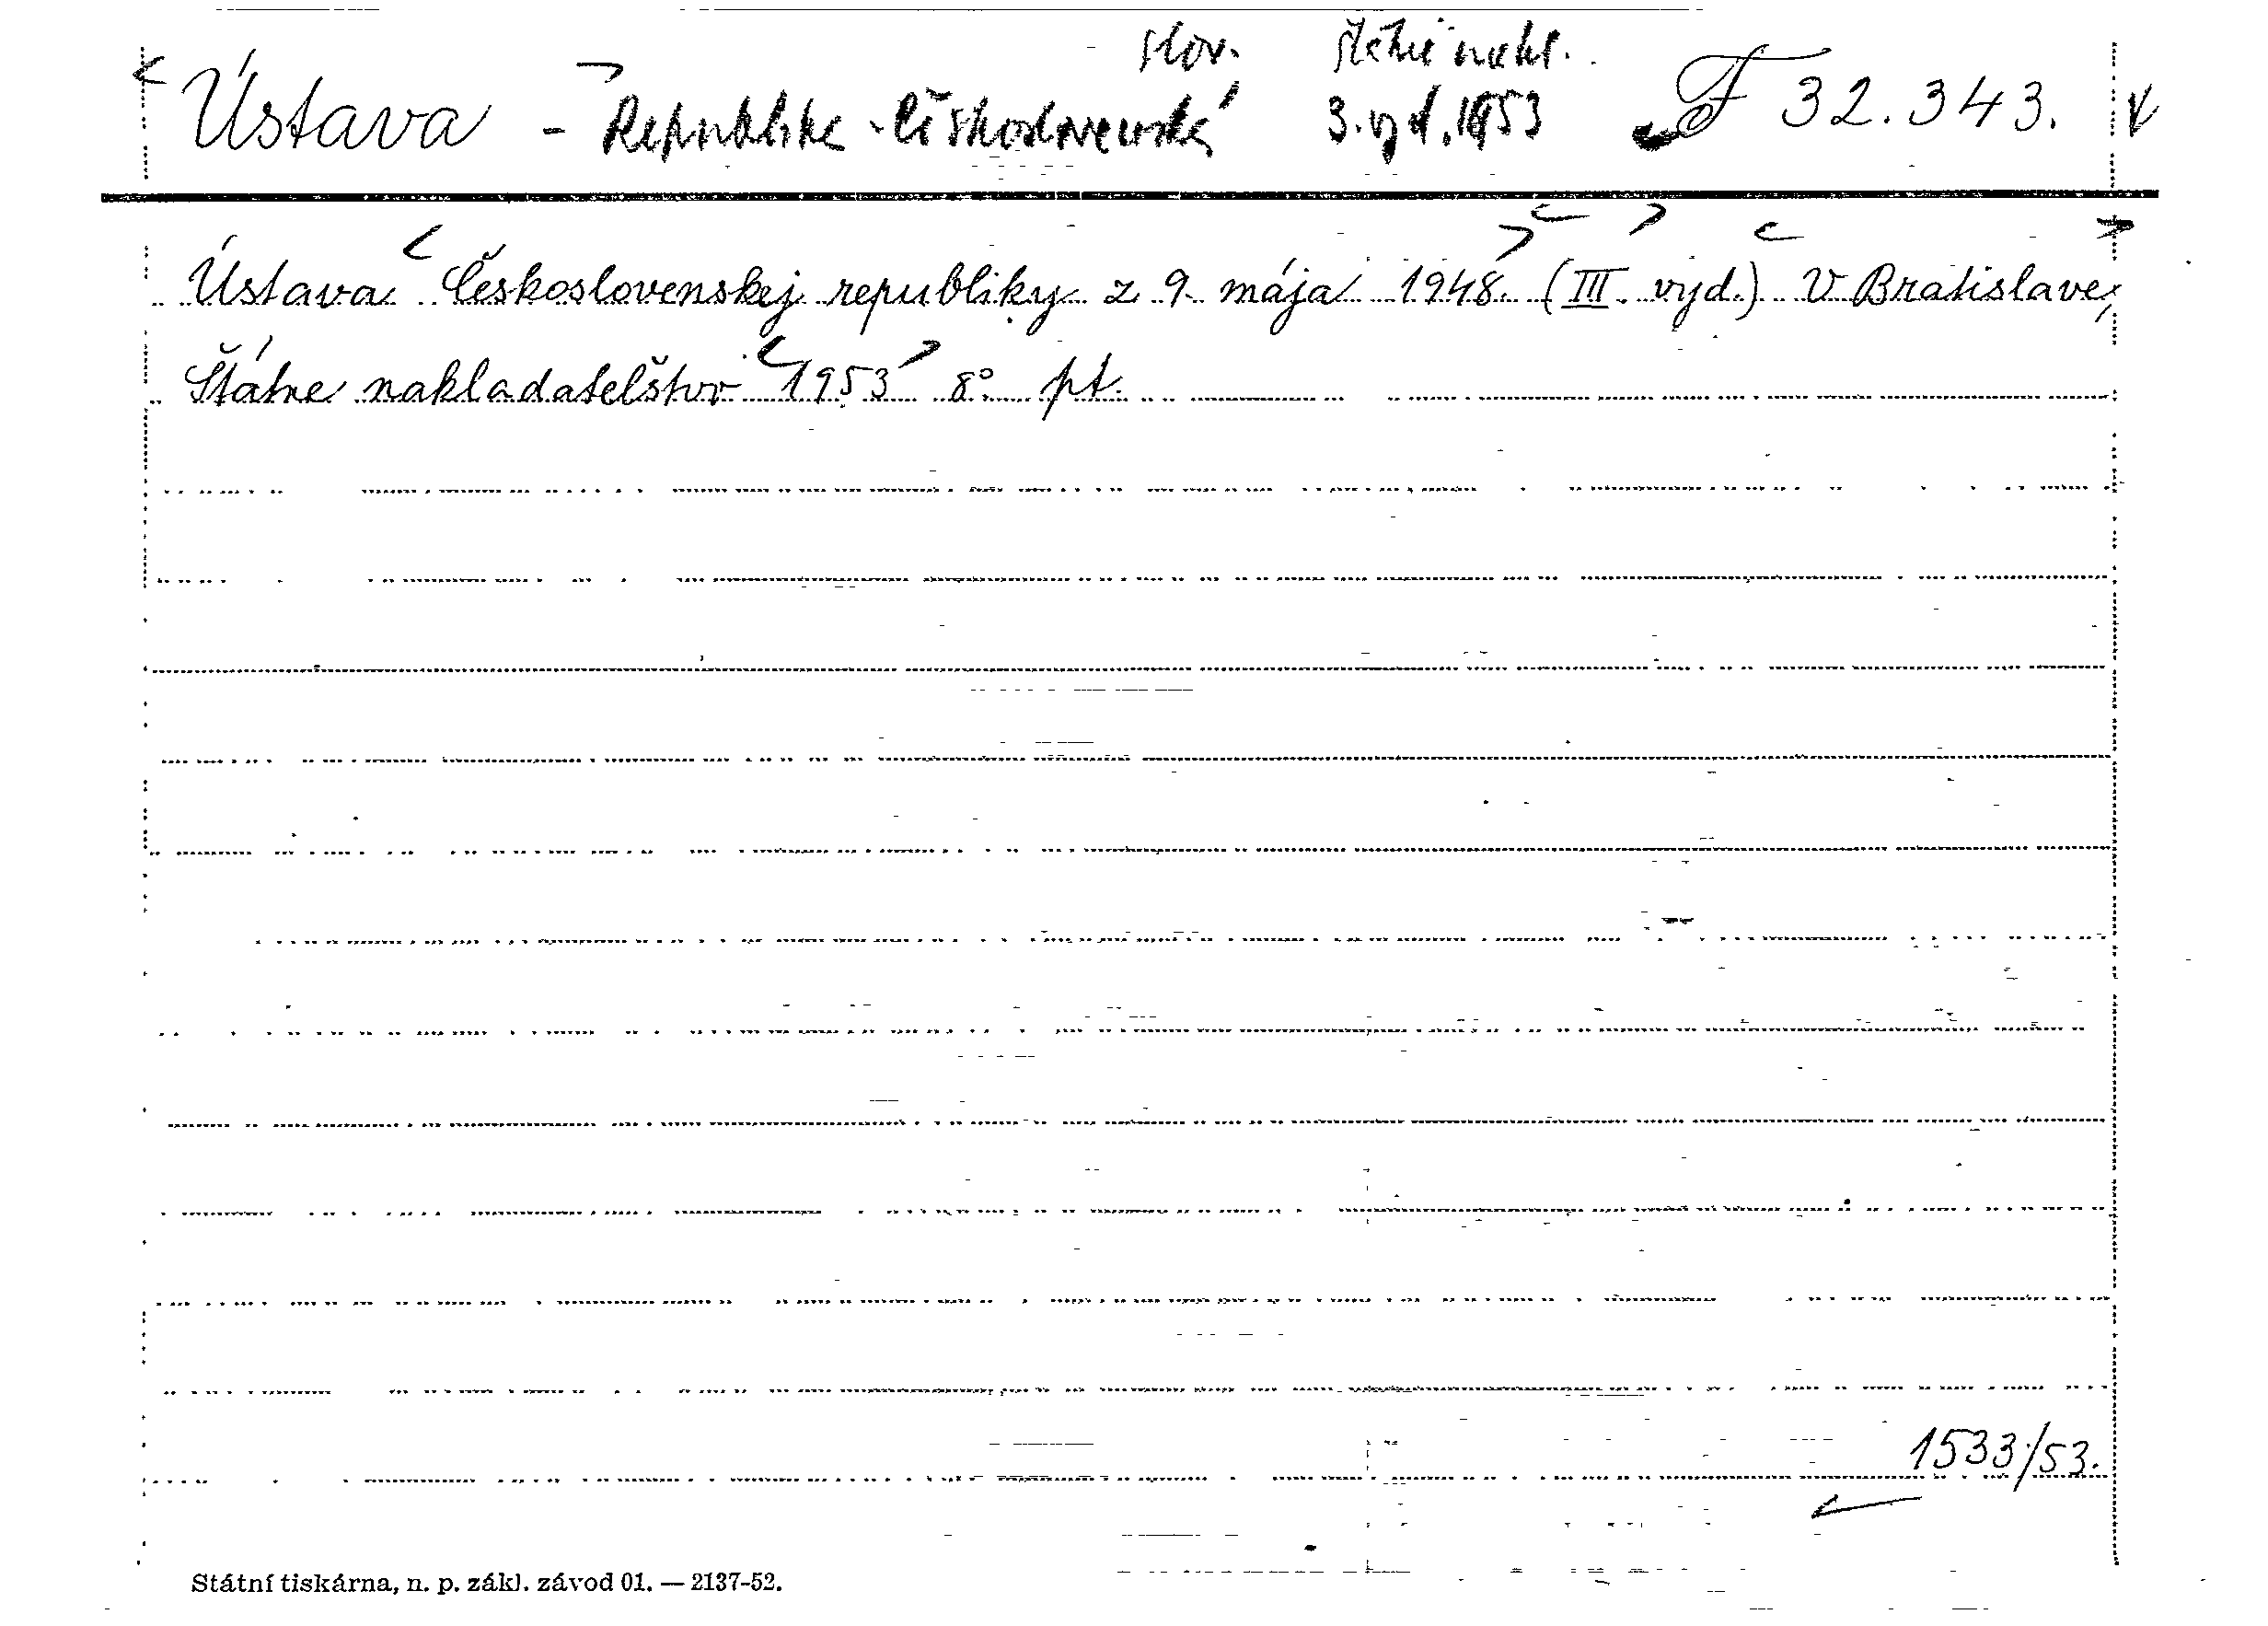 slov. Štátne nakl.
Ústava - Republika Československá 3. vyd. 1953 F 32.343.
Ústava Československej republiky z 9. mája 1948. (III. vyd.) V Bratislave,
Štátne nakladateľstvo 1953 8° pt.
1533/53.
Státní tiskárna, n. p. zákl. závod 01. — 2137-52.